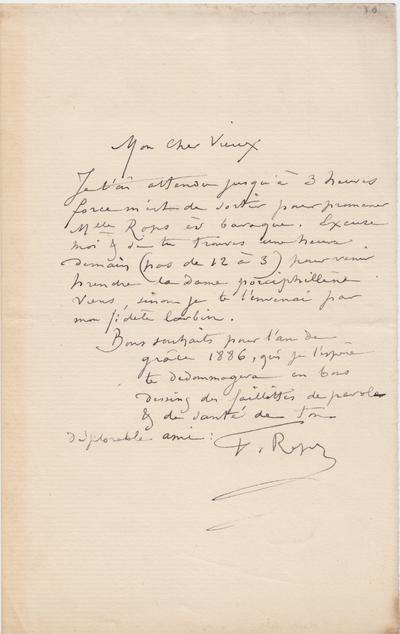 Mon Cher Vieux
Je t'ai attendu jusqu'à 3 heures
force m'est de sortir pour promener
Melle Rops
Excuse
moi & si tu trouves une heure
Demain (pas de 12 à 3) pour venir
prendre la Dame
viens, sinon je te l'enverrai par
mon fidèle larbin.
Bons souhaits pour l'an de
grâce 1886, qui je l'espère
te dedommagera en bons
dessins des faillites de parole
& de santé de ton
déplorable ami:
F. Rops